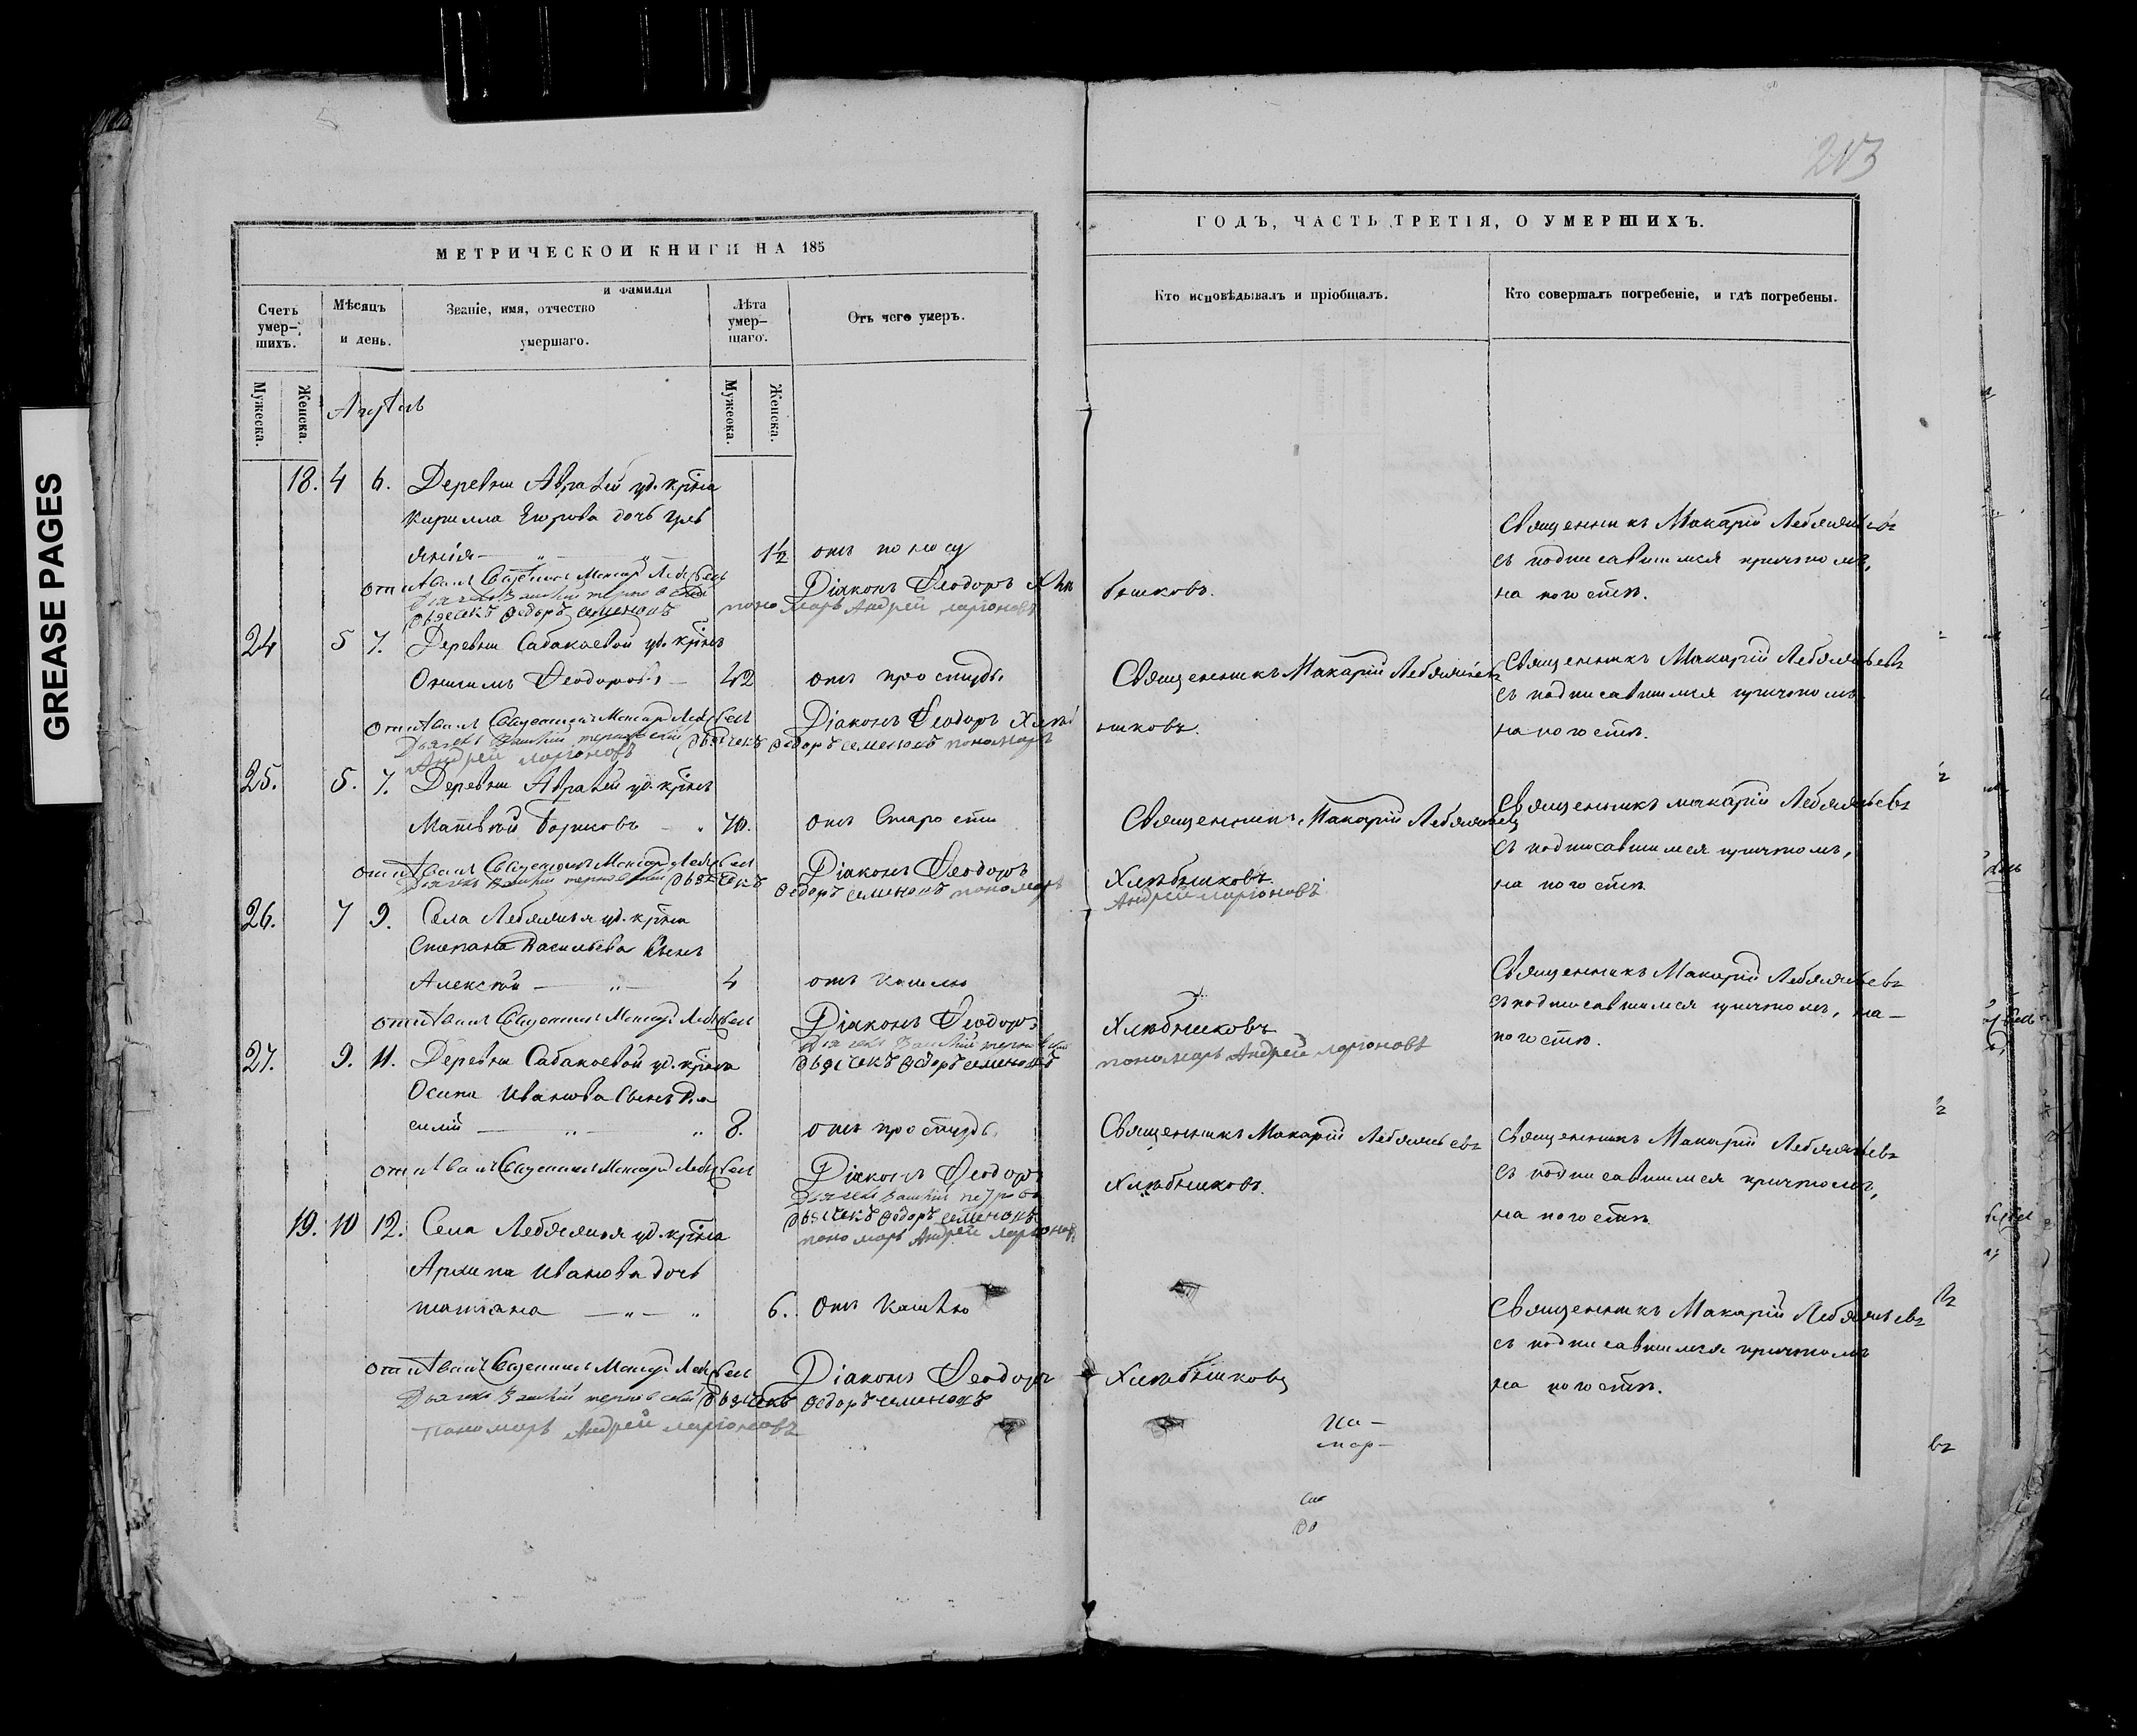 GREASE PAGES
213
МЕТРИЧЕСКОЙ КНИГИ НА 185
ГОДЪ, ЧАСТЬ ТРЕТІЯ, О УМЕРШИХЪ.
Счетъ умер-шихъ.
Мужеска.
Женска.
Мѣсяцъ и день.
Званіе, имя, отчество и фамилія умершаго.
Лѣта умер-шаго.
Мужеска.
Женска.
Отъ чего умеръ.
Кто исповѣдывалъ и пріобщалъ.
Кто совершалъ погребеніе, и гдѣ погребены.
18. 4 6. Деревни Авралей уд. кр҃нина
Кирилла Егорова дочь
1½ отъ поносу
Священникъ Макарій Лебяжьевъ
съ подписавшимся причтомъ,
на погостѣ.
отпѣвалъ Священникъ Макарій
Діаконъ Ѳеодоръ Хлѣбниковъ.
Дьячекъ Ѳедоръ Семеновъ
пономарь Андрей Ларіоновъ
24 5 7. Деревни Сабакаевой уд. кр҃нъ
Онисимъ Ѳеодоровъ 42 отъ простуды
Священникъ Макарій Лебяжьевъ
Священникъ Макарій Лебяжьевъ
съ подписавшимся причтомъ
на погостѣ.
отпѣвалъ Священникъ Макарій
Діаконъ Ѳеодоръ Хлѣбниковъ.
Дьячекъ Ѳедоръ Семеновъ пономарь
Андрей Ларіоновъ
25. 5. 7. Деревни Авралей уд. кр҃нъ
Матвѣй Борисовъ 70. отъ старости
Священникъ Макарій Лебяжьевъ
Священникъ Макарій Лебяжьевъ
съ подписавшимся причтомъ,
на погостѣ
отпѣвалъ Священникъ Макарій
Діаконъ Ѳеодоръ Хлѣбниковъ.
Дьячекъ Ѳедоръ Семеновъ пономарь
Андрей Ларіоновъ
26. 7 9. Села Лебяжья уд. кр҃нина
Степана Васильева сынъ
Алексѣй 4 отъ кашлю
Священникъ Макарій Лебяжьевъ
съ подписавшимся причтомъ, на-
погостѣ.
отпѣвалъ Священникъ Макарій
Діаконъ Ѳеодоръ Хлѣбниковъ
Дьячекъ Ѳедоръ Семеновъ
пономарь Андрей Ларіоновъ
27. 9. 11. Деревни Сабакаевой уд. кр҃нина
Осипа Иванова сынъ Ва
силій 8. отъ простуды
Священникъ Макарій Лебяжьевъ
Священникъ Макарій Лебяжьевъ
съ подписавшимся причтомъ,
на погостѣ
отпѣвалъ Священникъ Макарій
Діаконъ Ѳеодоръ Хлѣбниковъ.
Дьячекъ Ѳедоръ Семеновъ
пономарь Андрей Ларіоновъ
19. 10 12. Села Лебяжья уд. кр҃нина
Архипа Иванова дочь
Татіана 6. отъ кашлю
Священникъ Макарій Лебяжьевъ
съ подписавшимся причтомъ
на погостѣ.
отпѣвалъ Священникъ Макарій
Діаконъ Ѳеодоръ Хлѣбниковъ
Дьячекъ Ѳедоръ Семеновъ
пономарь Андрей Ларіоновъ